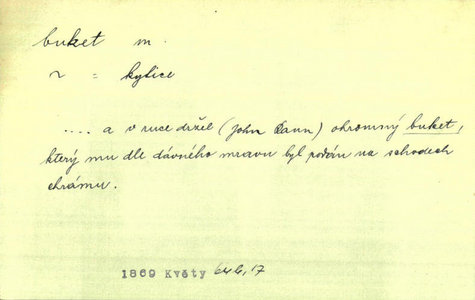 buket m.
~ = kytice
.... a v ruce držel (John Dann) ohromný buket,
který mu dle dávného mravu byl podán na schodech
chrámu.
1869 Květy 646, 17